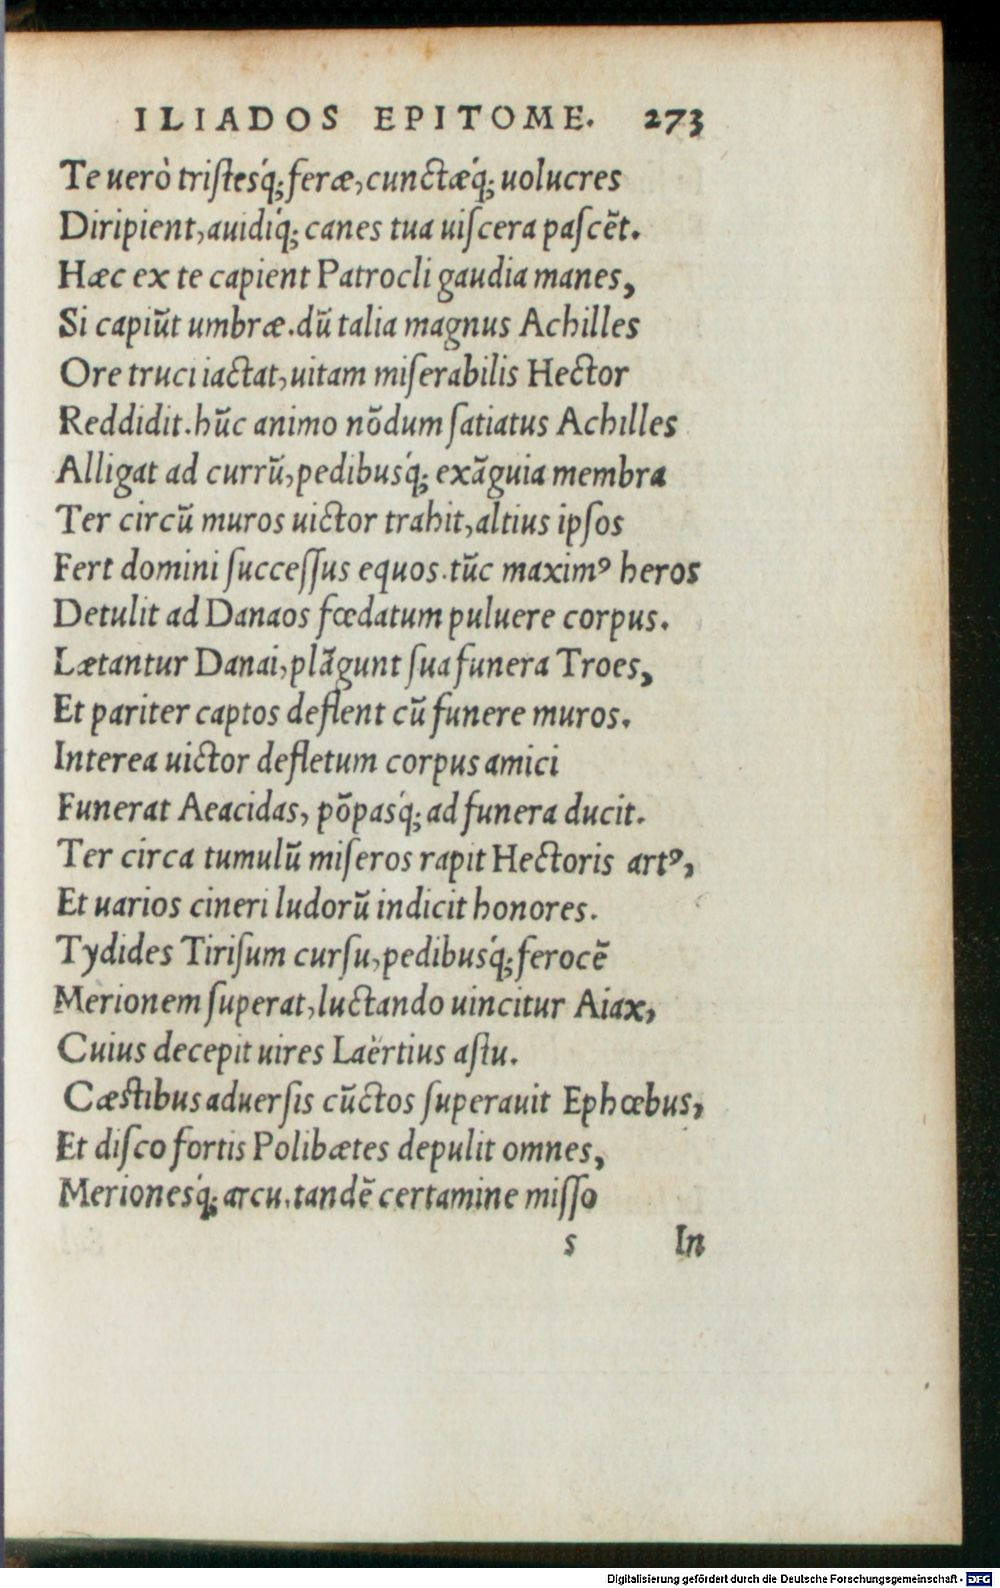 ILIADOS EPITOME. 273
Te uerò tristesq́; feræ, cunctæq́; uolucres
Diripient, auidiq́; canes tua uiscera pascẽt.
Hæc ex te capient Patrocli gaudia manes,
Si capiũt umbræ. dũ talia magnus Achilles
Ore truci iactat, uitam miserabilis Hector
Reddidit. hũc animo nõdum satiatus Achilles
Alligat ad currũ, pedibusq́; exãguia membra
Ter circũ muros uictor trahit, altius ipsos
Fert domini successus equos. tũc maximꝰ heros
Detulit ad Danaos fœdatum puluere corpus.
Lætantur Danai, plãgunt sua funera Troes,
Et pariter captos deflent cũ funere muros.
Interea uictor defletum corpus amici
Funerat Aeacidas, põpasq́; ad funera ducit.
Ter circa tumulũ miseros rapit Hectoris artꝰ,
Et uarios cineri ludorũ indicit honores.
Tydides Tirisum cursu, pedibusq́; ferocẽ
Merionem superat, luctando uincitur Aiax,
Cuius decepit uires Laërtius astu.
Cæstibus aduersis cũctos superauit Ephœbus,
Et disco fortis Polibætes depulit omnes,
Merionesq́; arcu. tandẽ certamine misso
s In
Digitalisierung gefördert durch die Deutsche Forschungsgemeinschaft - DFG